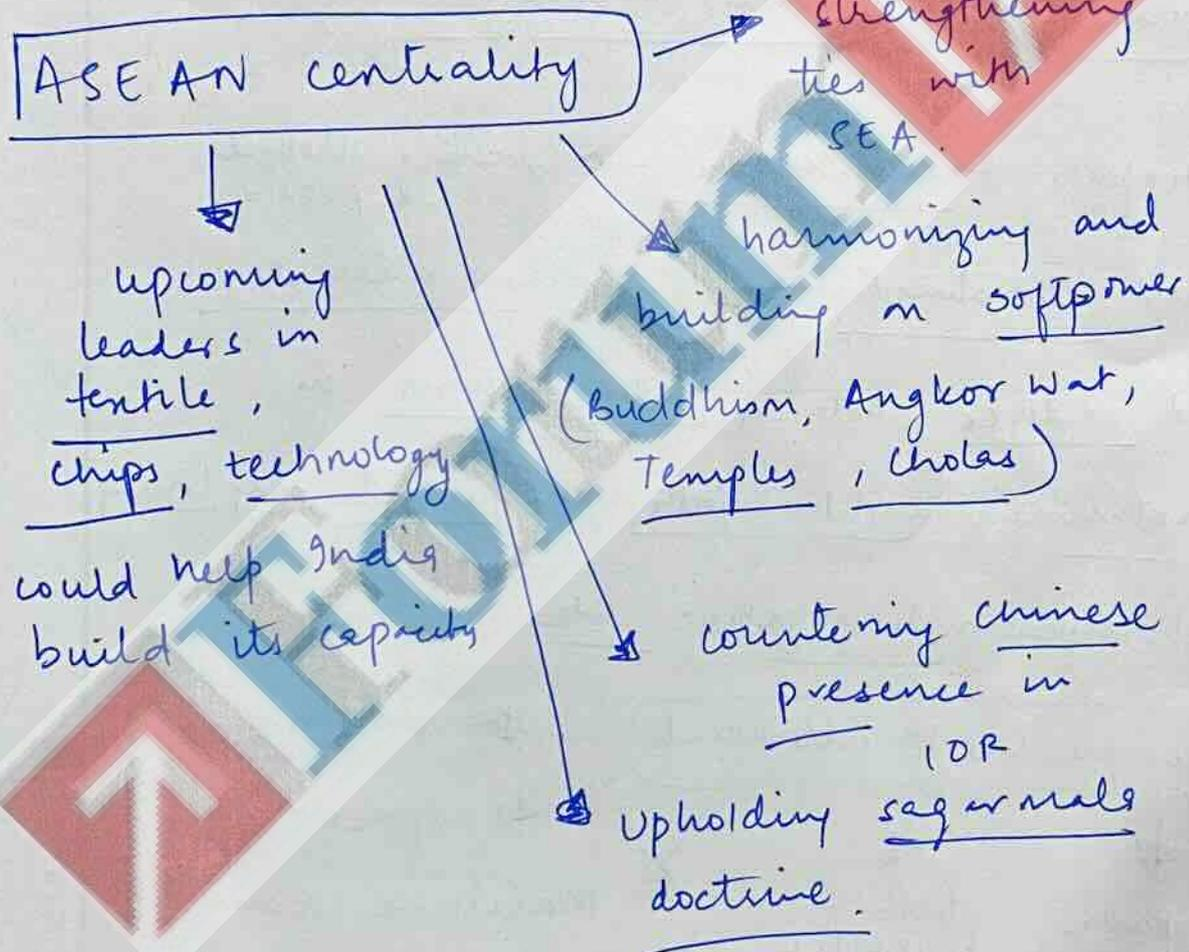 strengthening
ties with
SEA.
ASEAN centrality
upcoming
leaders in
textile,
chips, technology
could help India
build its capacity
harmonizing and
building on softpower
(Buddhism, Angkor Wat,
Temples, Cholas)
countering Chinese
presence in
IOR
Upholding sagarmala
doctrine.
Forum